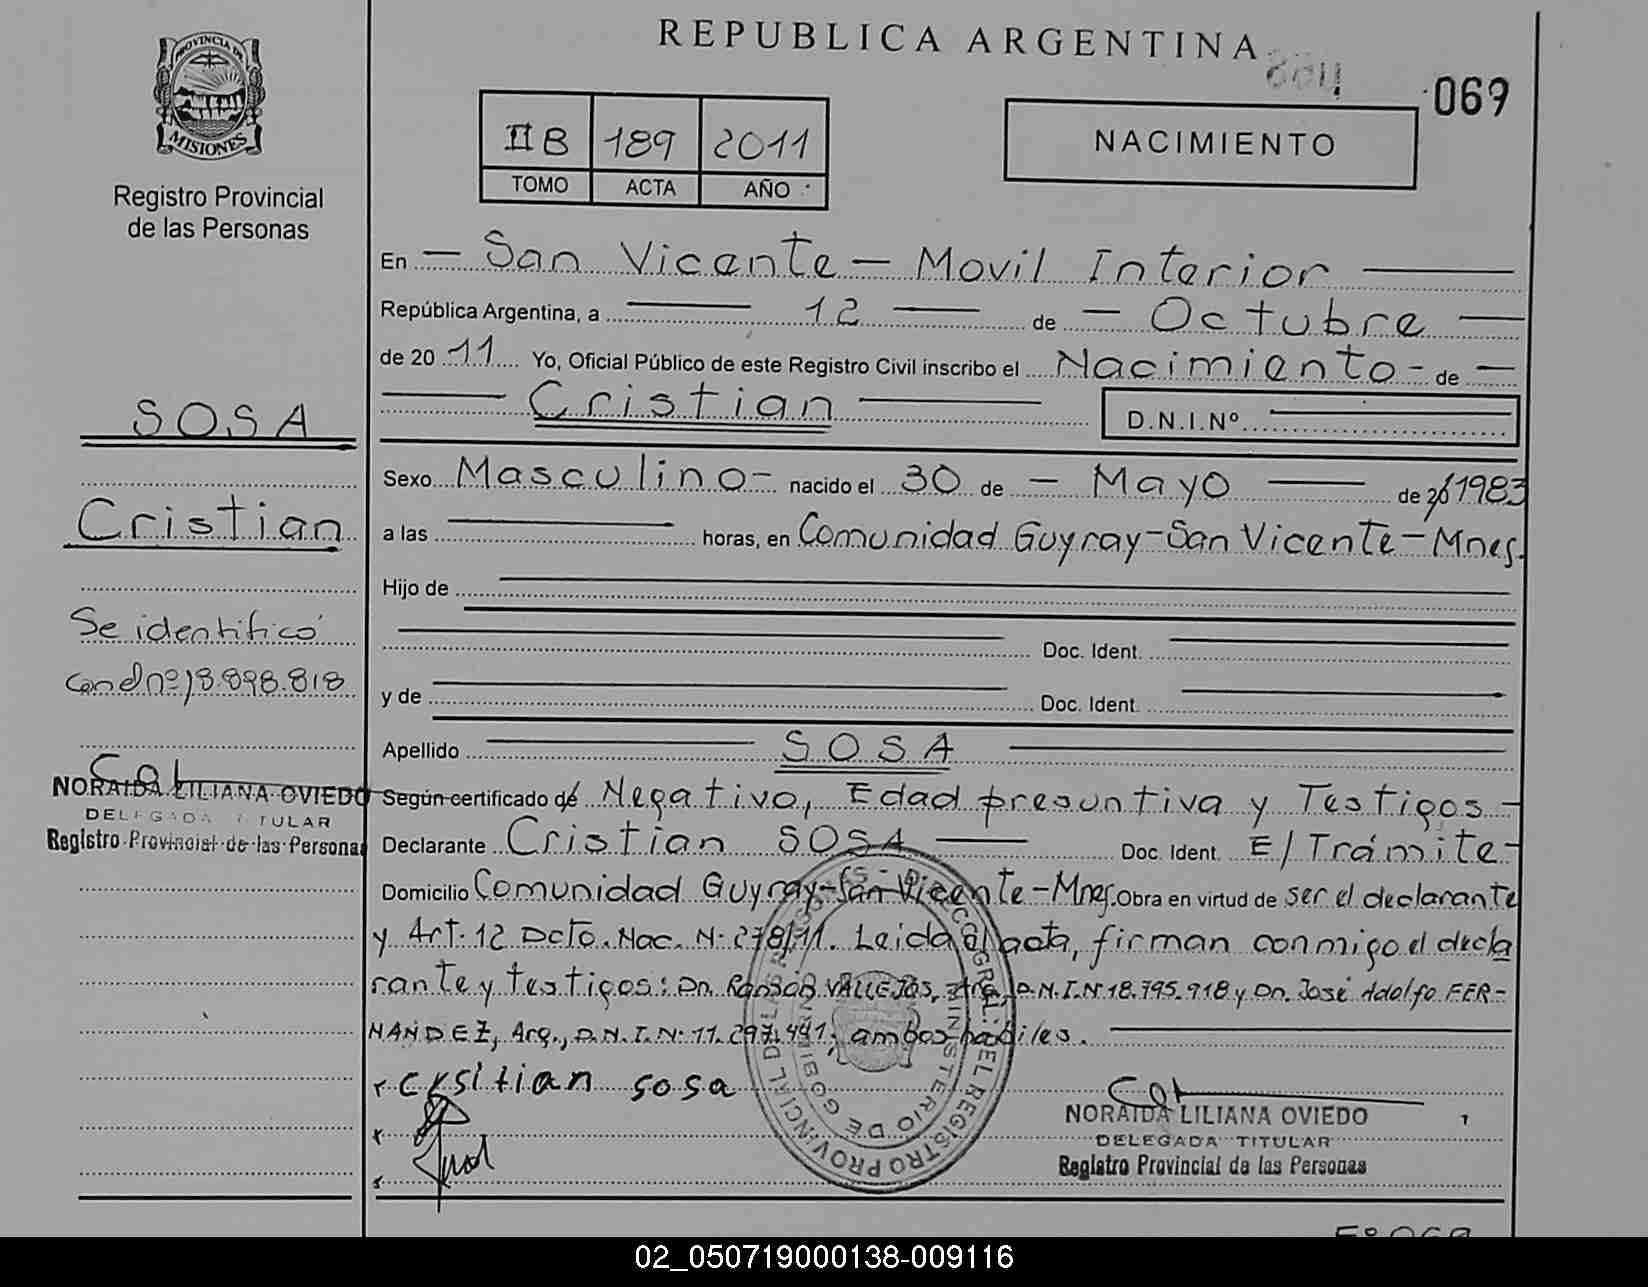 REPUBLICA ARGENTINA
069
PROVINCIA DE
MISIONES
Registro Provincial
de las Personas
II B 189 2011
TOMO ACTA AÑO
NACIMIENTO
En — San Vicente — Movil Interior —
República Argentina, a — 12 — de — Octubre —
de 20 11 Yo, Oficial Público de este Registro Civil inscribo el Nacimiento - de —
— Cristian — D.N.I.Nº —
SOSA
Cristian
Se identificó
con dni nº 18.898.818
NORAIDA LILIANA OVIEDO
DELEGADA TITULAR
Registro Provincial de las Personas
Sexo Masculino - nacido el 30 de — Mayo — de 1983
a las — horas, en Comunidad Guyray - San Vicente - Mnes.
Hijo de —
— Doc. Ident. —
y de — Doc. Ident. —
Apellido — SOSA —
Según certificado de Negativo, Edad presuntiva y Testigos -
Declarante Cristian SOSA — Doc. Ident. E/Trámite -
Domicilio Comunidad Guyray - San Vicente - Mnes. Obra en virtud de ser el declarante
y Art. 12 Dcto. Nac. N: 278/11. Leida el acta, firman conmigo el decla
rante y testigos: Dn. VALLEJOS, Arg., D.N.I.Nº 18.795.918 y Dn. José Adolfo FER-
NANDEZ, Arg., D.N.I.N: 11.297.441; ambos habiles.
crsitian sosa
REGISTRO PROVINCIAL DE LAS PERSONAS - DIRECC. GRAL. DEL
MINISTERIO DE GOBIERNO
NORAIDA LILIANA OVIEDO
DELEGADA TITULAR
Registro Provincial de las Personas
02_050719000138-009116